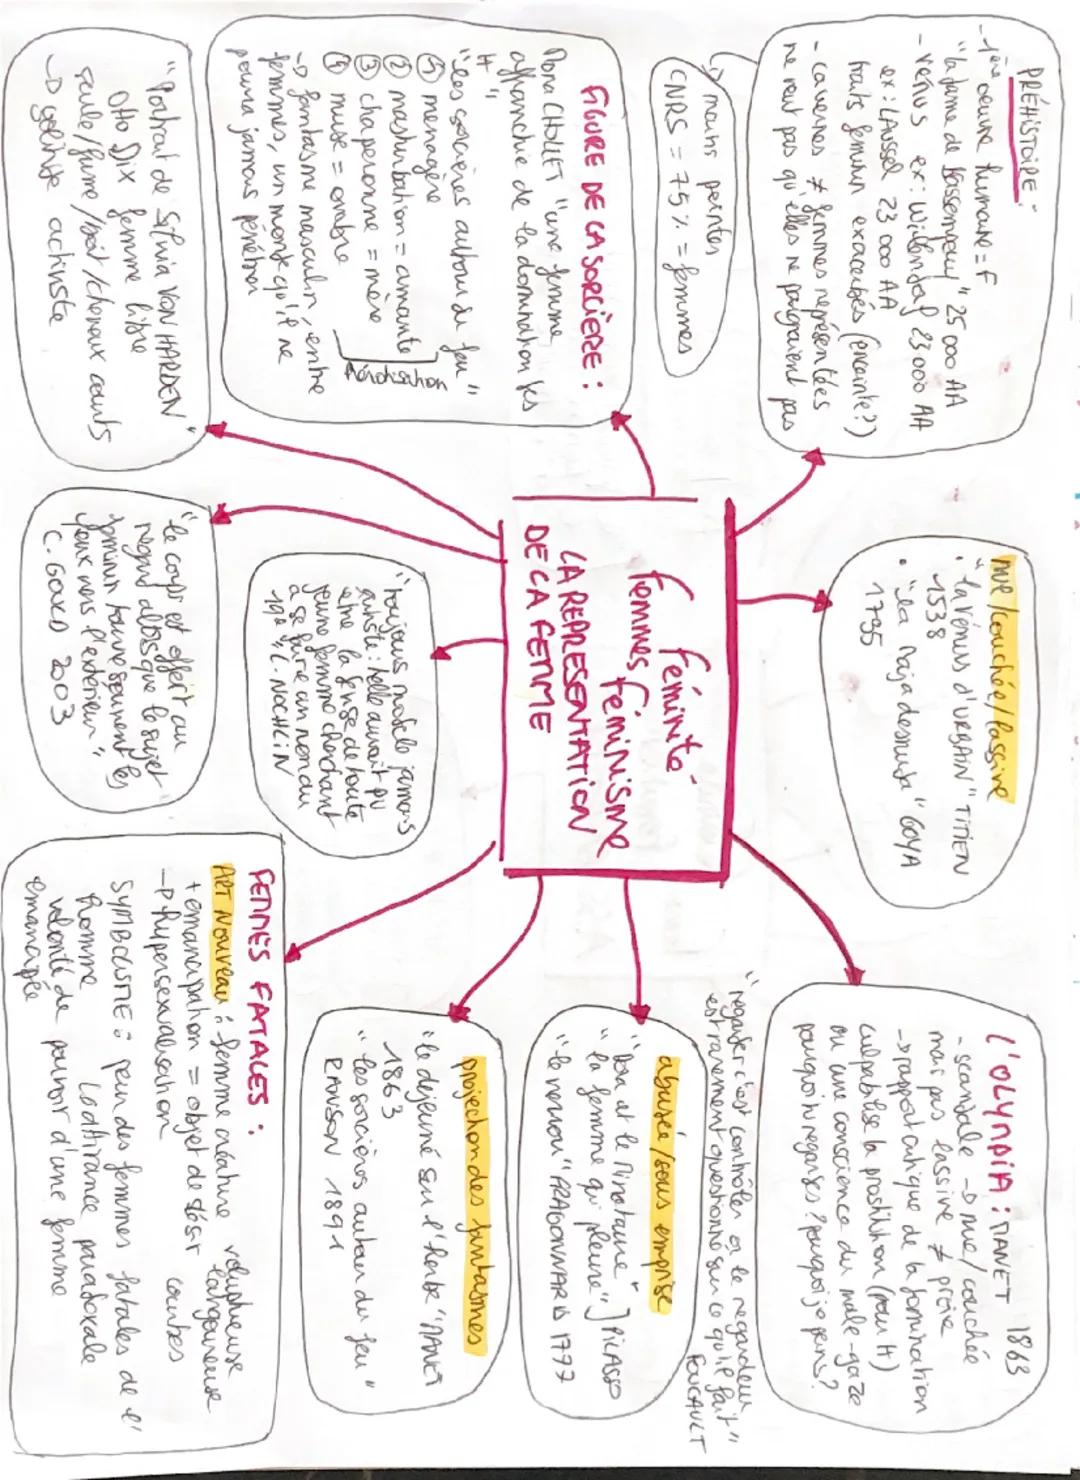 PRÉHISTOIRE :
- 1ère oeuvre humaine = F
"la dame de Brassempouy" 25 000 AA
- vénus ex : Willendorf 23 000 AA
ex : LAUSSEL 23 000 AA
traits féminin exacerbés (enceinte ?)
- cavernes ≠ femmes représentées
ne veut pas qu'elles ne peignaient pas
↳ mains peintes
CNRS = 75 % = femmes
FIGURE DE LA SORCIÈRE :
Mona CHOLLET "une femme
affranchie de la domination des
H"
"les sorcières autour du feu"
① ménagère
② masturbation = amante
③ chaperonne = mère
④ muse = ovabre
Hérotisation
-> fantasme masculin, entre
femmes, un monde qu'il ne
pourra jamais pénétrer
"Portrait de Silvia VON HARDEN"
Otto Dix femme libre
seule/fume/boit/cheveux courts
-> gauchiste activiste
nue/couchée/lassive
• "la vénus d'URBAIN" TITIEN
1538
• "la Maja desnuda" GOYA
1795
Féminité
Femmes Féminisme
LA REPRESENTATION
DE LA FEMME
"toujours modèle jamais
artiste : telle aurait pu
être la devise de toute
jeune femme cherchant
à se faire un nom au
19e" L. NOCHLIN
"le corps est offert au
regard alors que le sujet
féminin tourne souvent les
yeux vers l'extérieur"
C. GOUCD 2003
L'OLYMPIA : MANET 1863
- scandale -> nue/couchée
mais pas lassive ≠ proie
-> rapport critique de la domination
culpabilise la prostitution (pour H)
ou une conscience du male-gaze
pourquoi tu regardes ? pourquoi je peins ?
"regarder c'est contrôler or le regardeur
est rarement questionné sur ce qu'il fait"
FOUCAULT
abusée/sous emprise
"Dora et le Minotaure"
"la femme qui pleure" ] PICASSO
"le verrou" FRAGONNARD 1777
projection des fantasmes
"le déjeuné sur l'herbe" MANET
1863
"les sorcières autour du feu"
RANSON 1891
FEMMES FATALES :
ART NOUVEAU : femme créature voluptueuse
langoureuse
+ émancipation = objet de désir courbes
-> hypersexualisation
SYMBOLISME : peur des femmes fatales de l'
homme L'attirance paradoxale
volonté de pouvoir d'une femme
émancipée